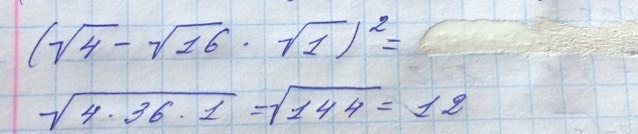 (√4 - √16 · √1)² =
√4 · 36 · 1 = √144 = 12